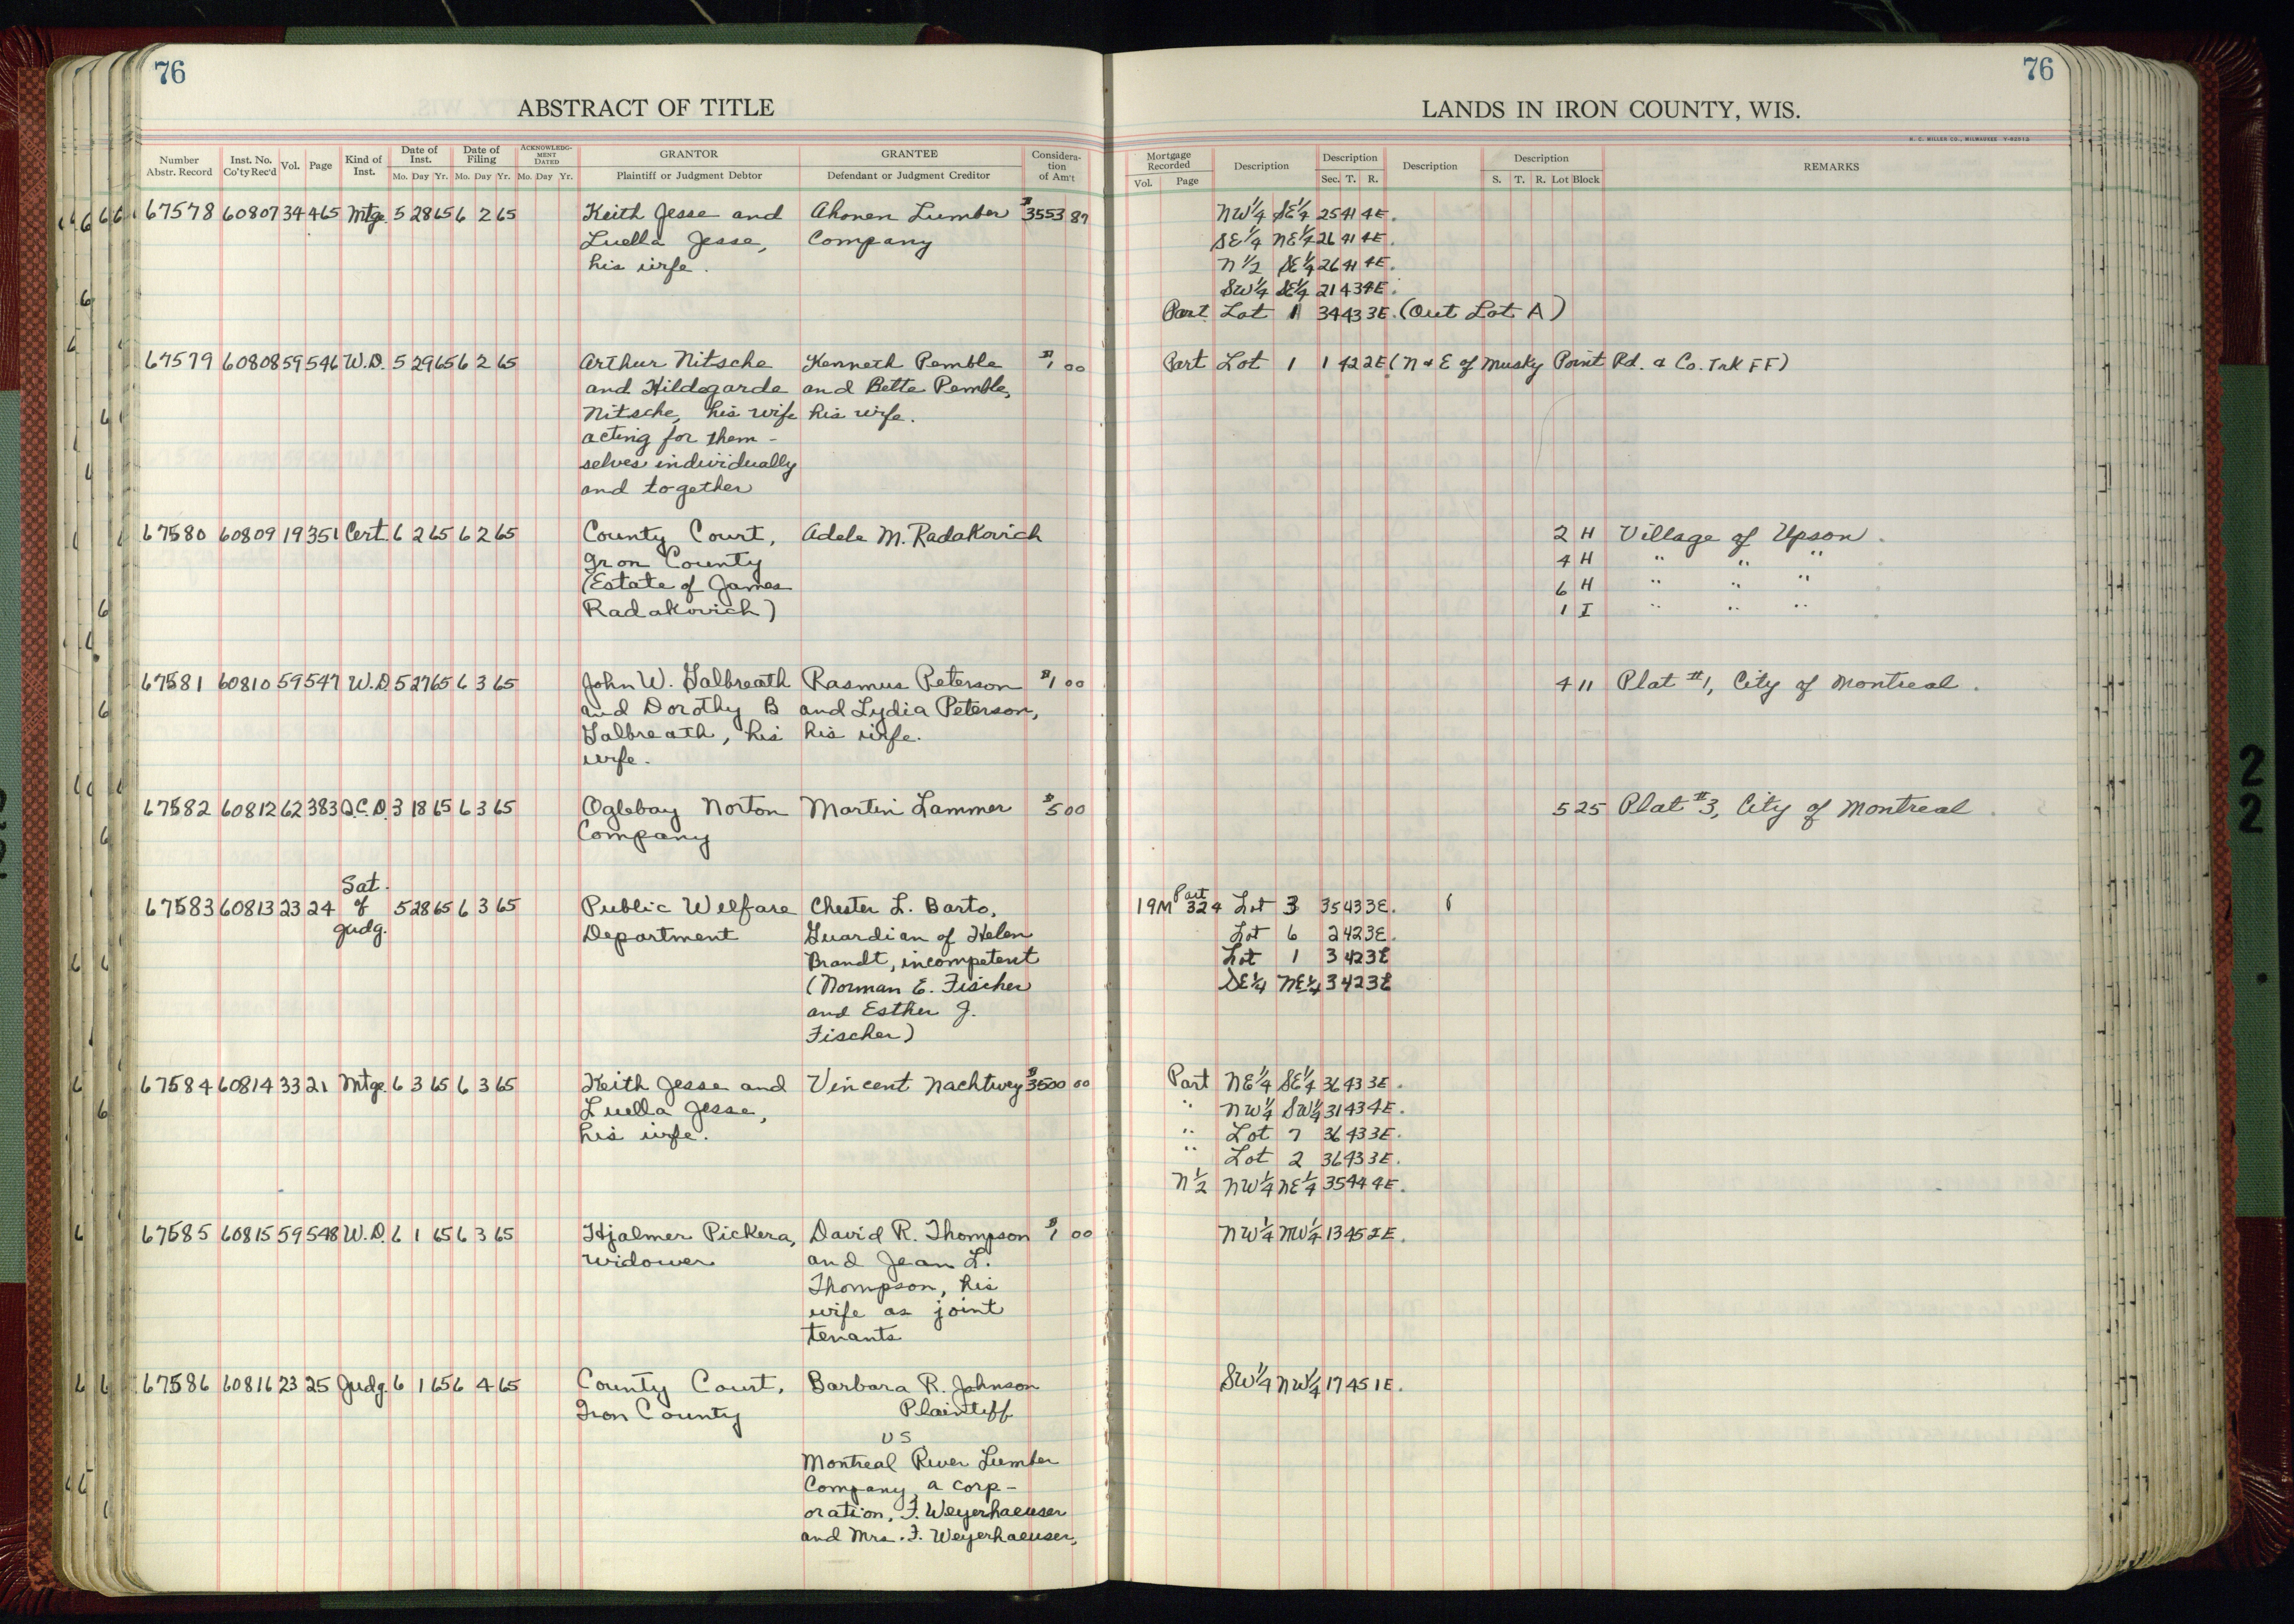 76
ABSTRACT OF TITLE
Number Abstr. Record
Inst. No. Co'ty Rec'd
Vol.
Page
Kind of Inst.
Date of Inst.
Mo. Day Yr.
Date of Filing
Mo. Day Yr.
ACKNOWLEDGMENT DATED
Mo. Day Yr.
GRANTOR
Plaintiff or Judgment Debtor
GRANTEE
Defendant or Judgment Creditor
Consideration of Am't
67578 60807 34 465 Mtge. 5 28 65 6 2 65 Keith Jesse and Ahonen Lumber $3553 87
Luella Jesse, Company
his wife.
67579 60808 59 546 W.D. 5 29 65 6 2 65 Arthur Nitsche Kenneth Pemble $1 00
and Hildegarde and Bette Pemble,
Nitsche, his wife his wife.
acting for them-
selves individually
and together
67580 60809 19 351 Cert. 6 2 65 6 2 65 County Court, Adele M. Radakovich
Iron County
(Estate of James
Radakovich)
67581 60810 59 547 W.D. 5 27 65 6 3 65 John W. Galbreath Rasmus Peterson $1 00
and Dorothy B and Lydia Peterson,
Galbreath, his his wife.
wife.
67582 60812 62 383 Q.C.D. 3 18 65 6 3 65 Oglebay Norton Martin Lammer $5 00
Company
Sat.
67583 60813 23 24 of 5 28 65 6 3 65 Public Welfare Chester L. Barto,
Judg. Department Guardian of Helen
Brandt, incompetent
(Norman E. Fischer
and Esther J.
Fischer)
67584 60814 33 21 Mtge. 6 3 65 6 3 65 Keith Jesse and Vincent Nachtwey $3500 00
Luella Jesse,
his wife.
67585 60815 59 548 W.D. 6 1 65 6 3 65 Hjalmer Pickera, David R. Thompson $1 00
widower and Jean L.
Thompson, his
wife as joint
tenants
67586 60816 23 25 Judg. 6 1 65 6 4 65 County Court, Barbara R. Johnson
Iron County Plaintiff
vs
Montreal River Lumber
Company, a corp-
oration, F. Weyerhaeuser
and Mrs. F. Weyerhaeuser,
76
LANDS IN IRON COUNTY, WIS.
H. C. MILLER CO., MILWAUKEE
Mortgage Recorded
Vol. Page
Description
Description
Sec. T. R.
Description
Description
S. T. R. Lot Block
REMARKS
NW¼ SE¼ 25 41 4E.
SE¼ NE¼ 26 41 4E.
N½ SE¼ 26 41 4E.
SW¼ SE¼ 21 43 4E.
Part Lot 1 34 43 3E. (Out Lot A)
Part Lot 1 1 42 2E (N & E of Musky Point Rd. & Co. Trk FF)
2 H Village of Upson.
4 H " " "
6 H " " "
1 I " " "
4 11 Plat #1, City of Montreal.
5 25 Plat #3, City of Montreal.
Part
19M 324 Lot 3 35 43 3E.
Lot 6 2 42 3E.
Lot 1 3 42 3E
SE¼ NE¼ 3 42 3E
Part NE¼ SE¼ 36 43 3E.
" NW¼ SW¼ 31 43 4E.
" Lot 7 36 43 3E.
" Lot 2 36 43 3E.
N½ NW¼ NE¼ 35 44 4E.
NW¼ NW¼ 13 45 2E.
SW¼ NW¼ 17 45 1E.
2
2